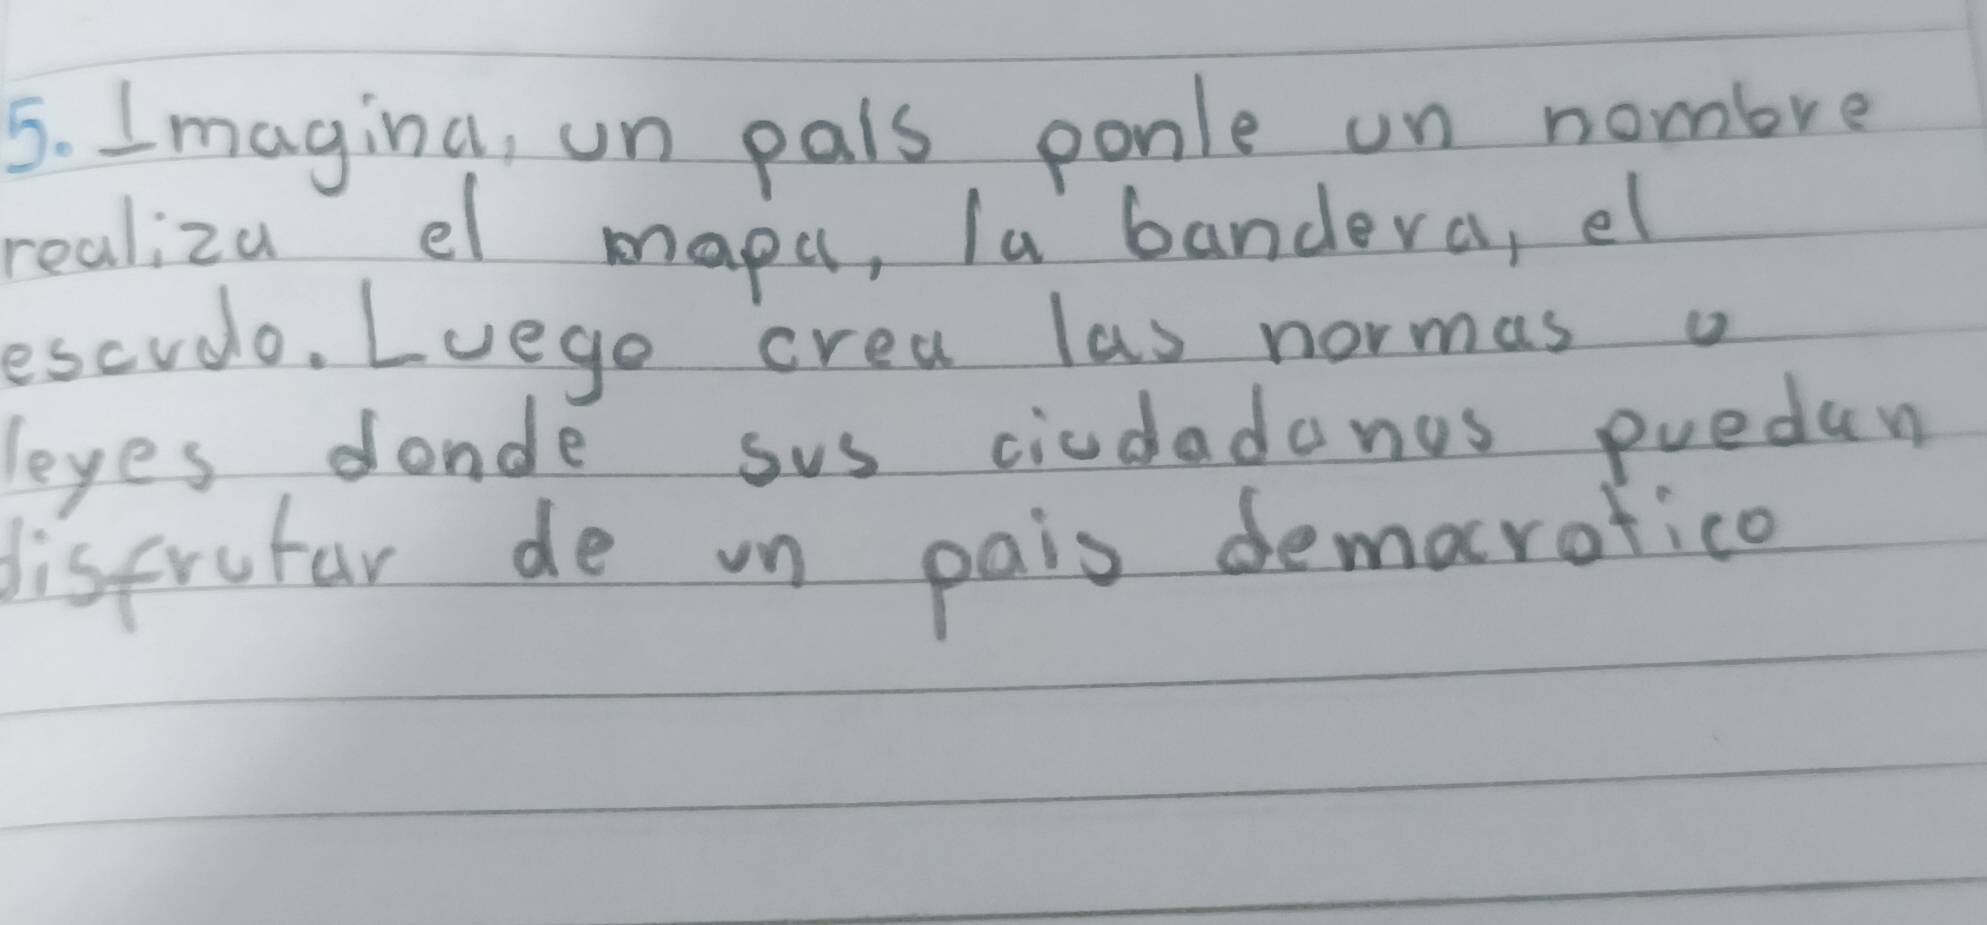 5. Imagina, un pais ponle un nombre
realiza el mapa, la bandera, el
escudo. Luego crea las normas o
leyes donde sus ciudadanos puedan
disfrutar de un pais democratico